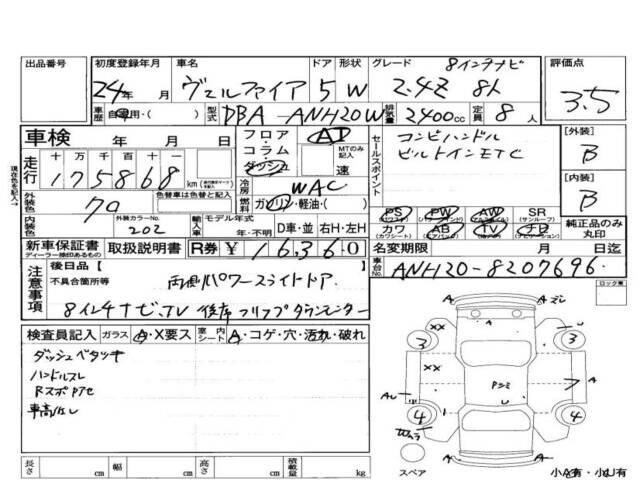 出品番号 初度登録年月 車名 ドア 形状 グレード 8インチナビ 評価点
24年 月 ヴェルファイア 5 W 2.4Z 8人 3.5
車歴 自家用・( ) 型式 DBA-ANH20W 排気量 2400cc 定員 8人
車検 年 月 日 フロア・コラム・ダッシュ AT セールスポイント コンビハンドル [外装]
走行 十万千百十一 MTのみ記入 速 ビルトインETC B
175868 km 冷房 WAC [内装]
外装色 70 色替車は色替と記入 燃料 ガソリン・軽油・( ) B
PS PW AW SR
内装色 外装カラーNo. 202 輸入車 モデル年式 年 D車・並 右H・左H カワ AB TV ナビ 純正品のみ丸印
新車保証書 ディーラー捺印あるもの 取扱説明書 R券 ¥16360 名変期限 月 日迄
注意事項 後日品【 】 車台No. ANH20-8207696
不具合箇所等 両側パワースライドドア
8インチナビ.TV 後席フリップダウンモニター
ロック有
検査員記入 ガラス A・X要ス 室内シート A・コゲ・穴・汚れ・破れ
ダッシュベタツキ
ハンドルスレ
車高
A
XX
3
3
XX
A
AU
4
4
U
スペア
小A有・小U有
長さ cm 幅 cm 高さ cm 積載量 kg
現在色を記入